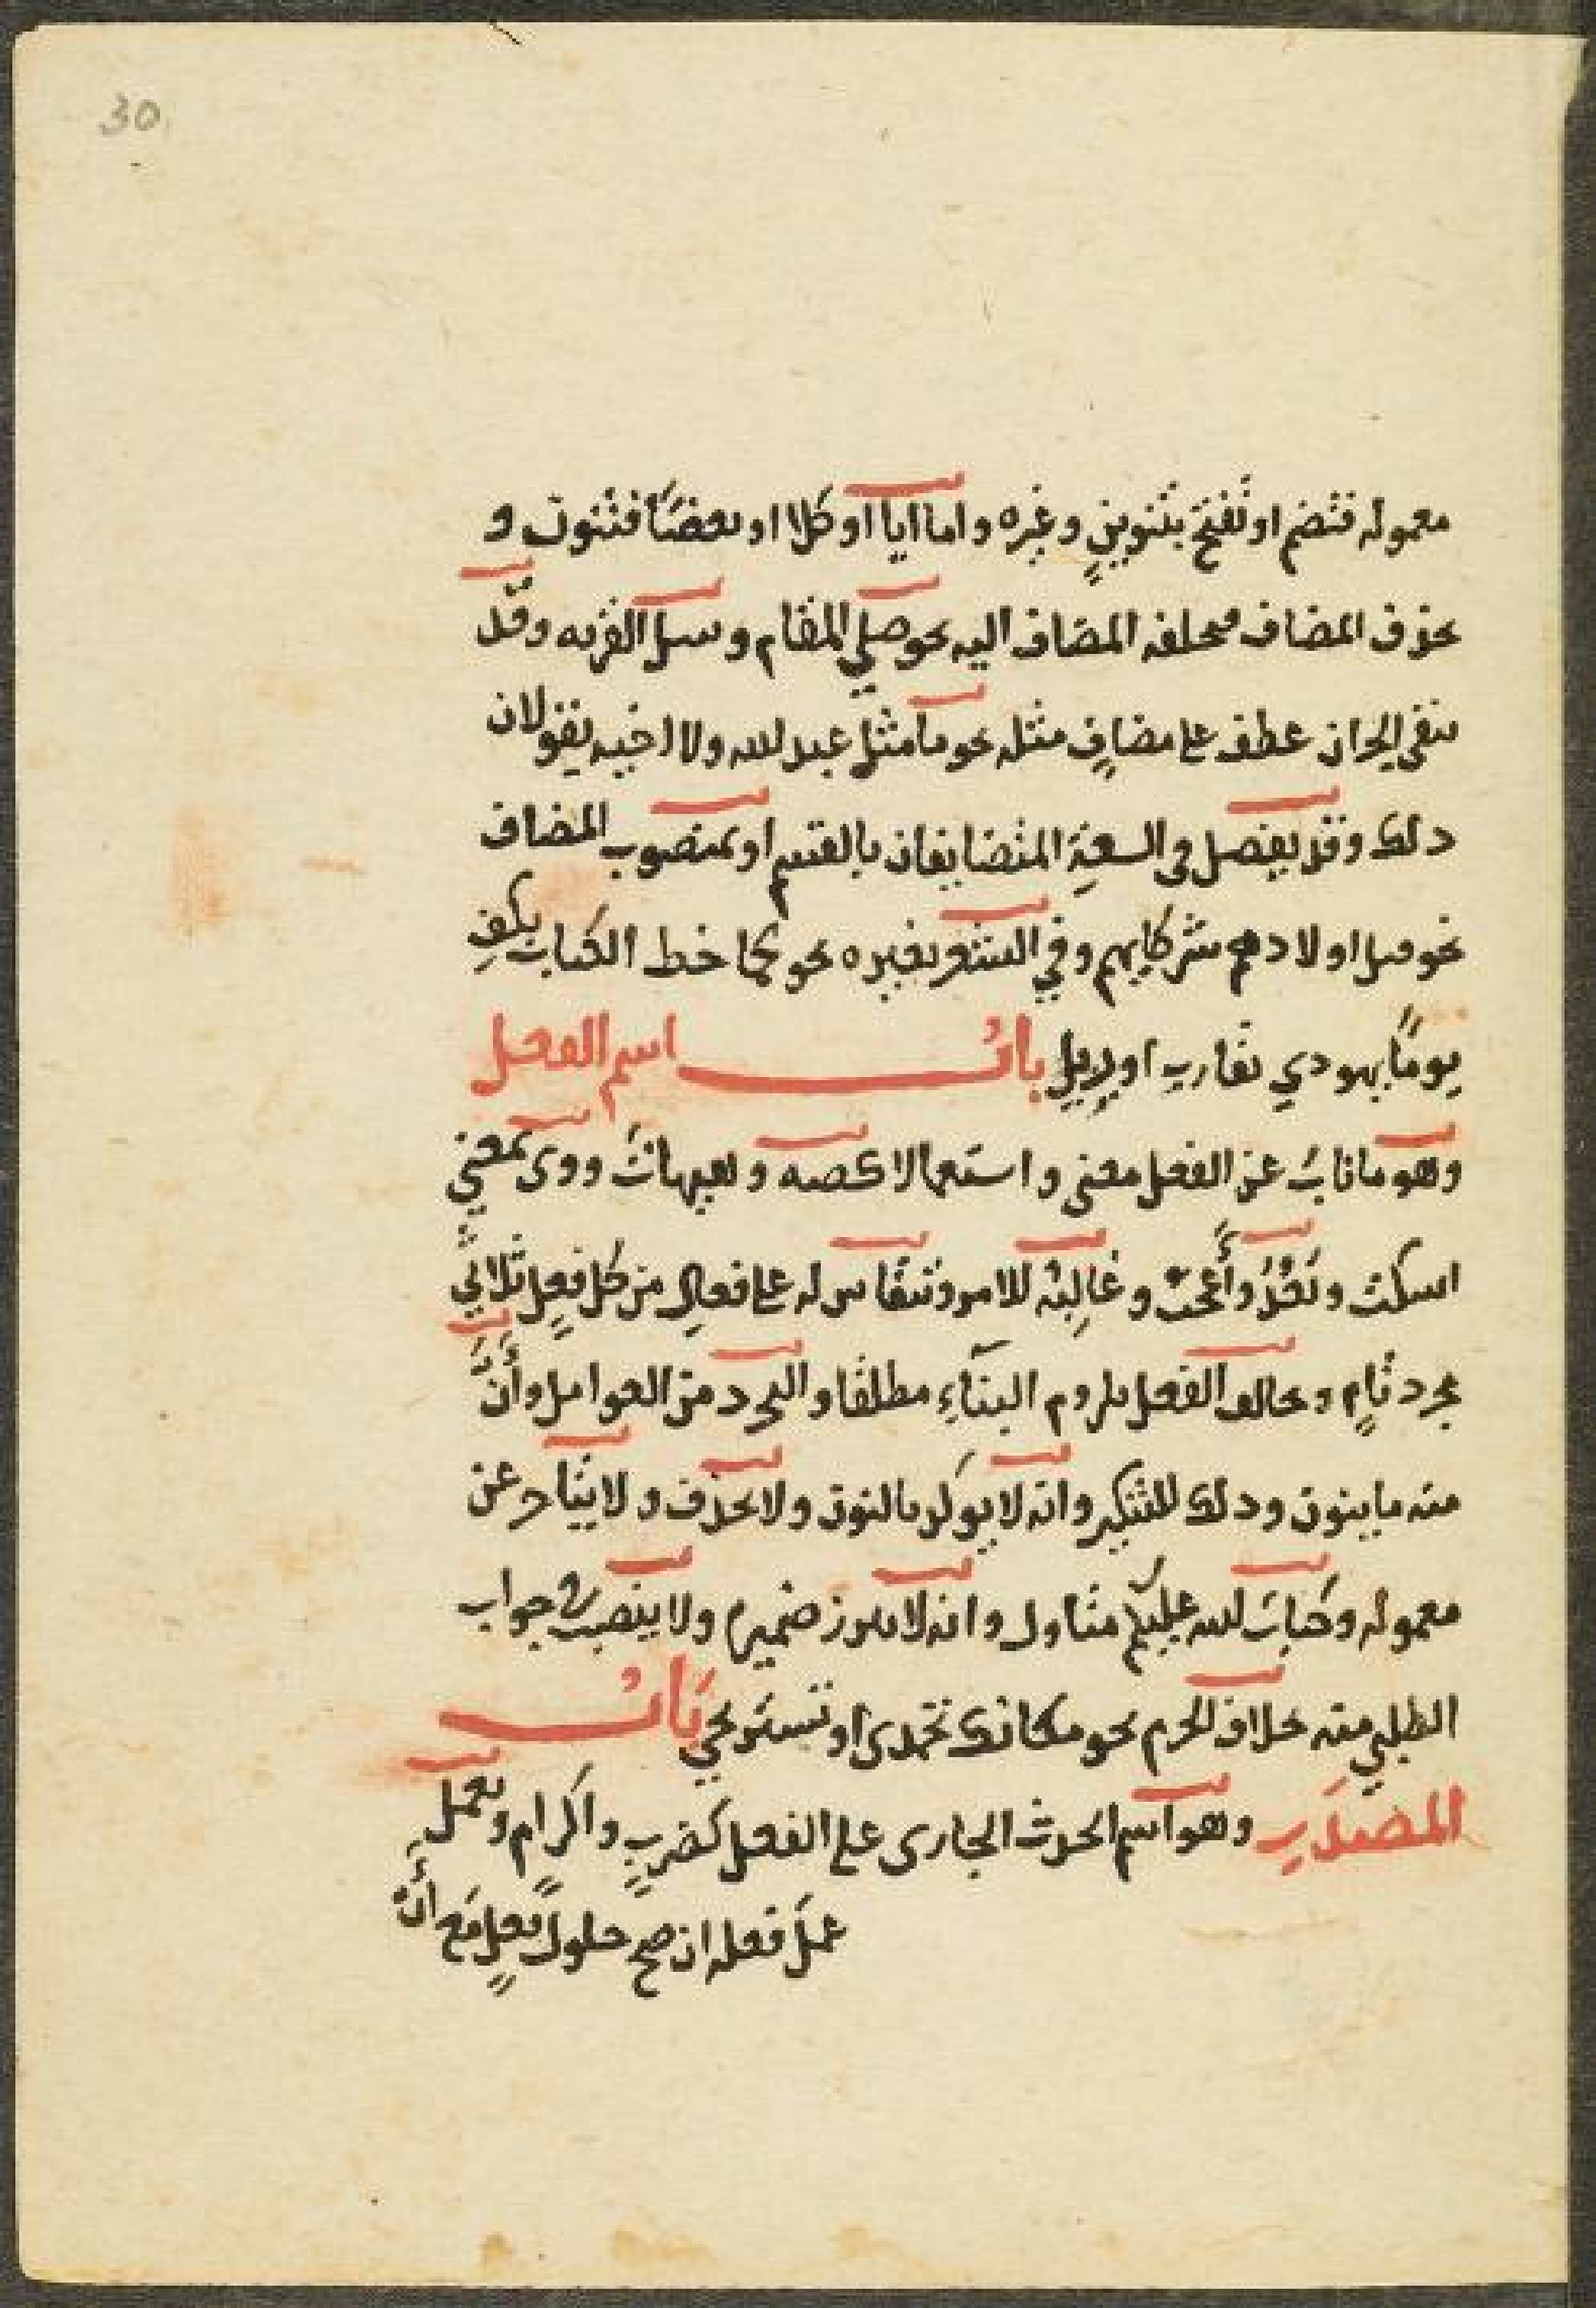 30
معموله فتضم او تفتح بتنوينٍ وغيره واما ايا او كلا او بعضا فتنون و
يحذف المضاف فيخلفه المضاف اليه نحو صلي المقام وسل القريه وقد
يبقي الجران عطف على مضافٍ مثله نحو ما مثل عبد لله ولا اخيه يقولان
ذلك وقد يفصل في السعةِ المتضايفان بالقسم او بمنصوب المضاف
نحو قتل اولادهم شركايهم وفي الشعر بغيره نحو كما خط الكتاب بكفِ
يومًا يهودي يقارب او يزيل بابُ اسم الفعل
وهو ما نابَ عن الفعل معنى واستعمالا كصه وهيهاتَ ووى بمعني
اسكت وبَعُدَ وأَعجبُ وغالبُه للامر وتنقاس له على فعالِ من كل فعلٍ ثلاثيٍ
مجرد تامٍ ويخالف الفعل بلزوم البناءِ مطلقا والتجرد من العوامل وأَنَّ
منه ما ينون وذلك للتنكير وانه لا يوكد بالنون ولا يحذف ولا يتاخر عن
معموله وكتابَ لله عليكم متاول وانه لا يبرز ضميره ولا ينصب في جواب
الطلبي منه خلاف الجزم نحو مكانك تحمدى او تستريحي بَابُ
المصدَرِ وهو اسم الحدث الجارى على الفعل كضربٍ واكرامٍ ويعمل
عملَ فعله ان صح حلولُ فعلٍ مع أَنْ